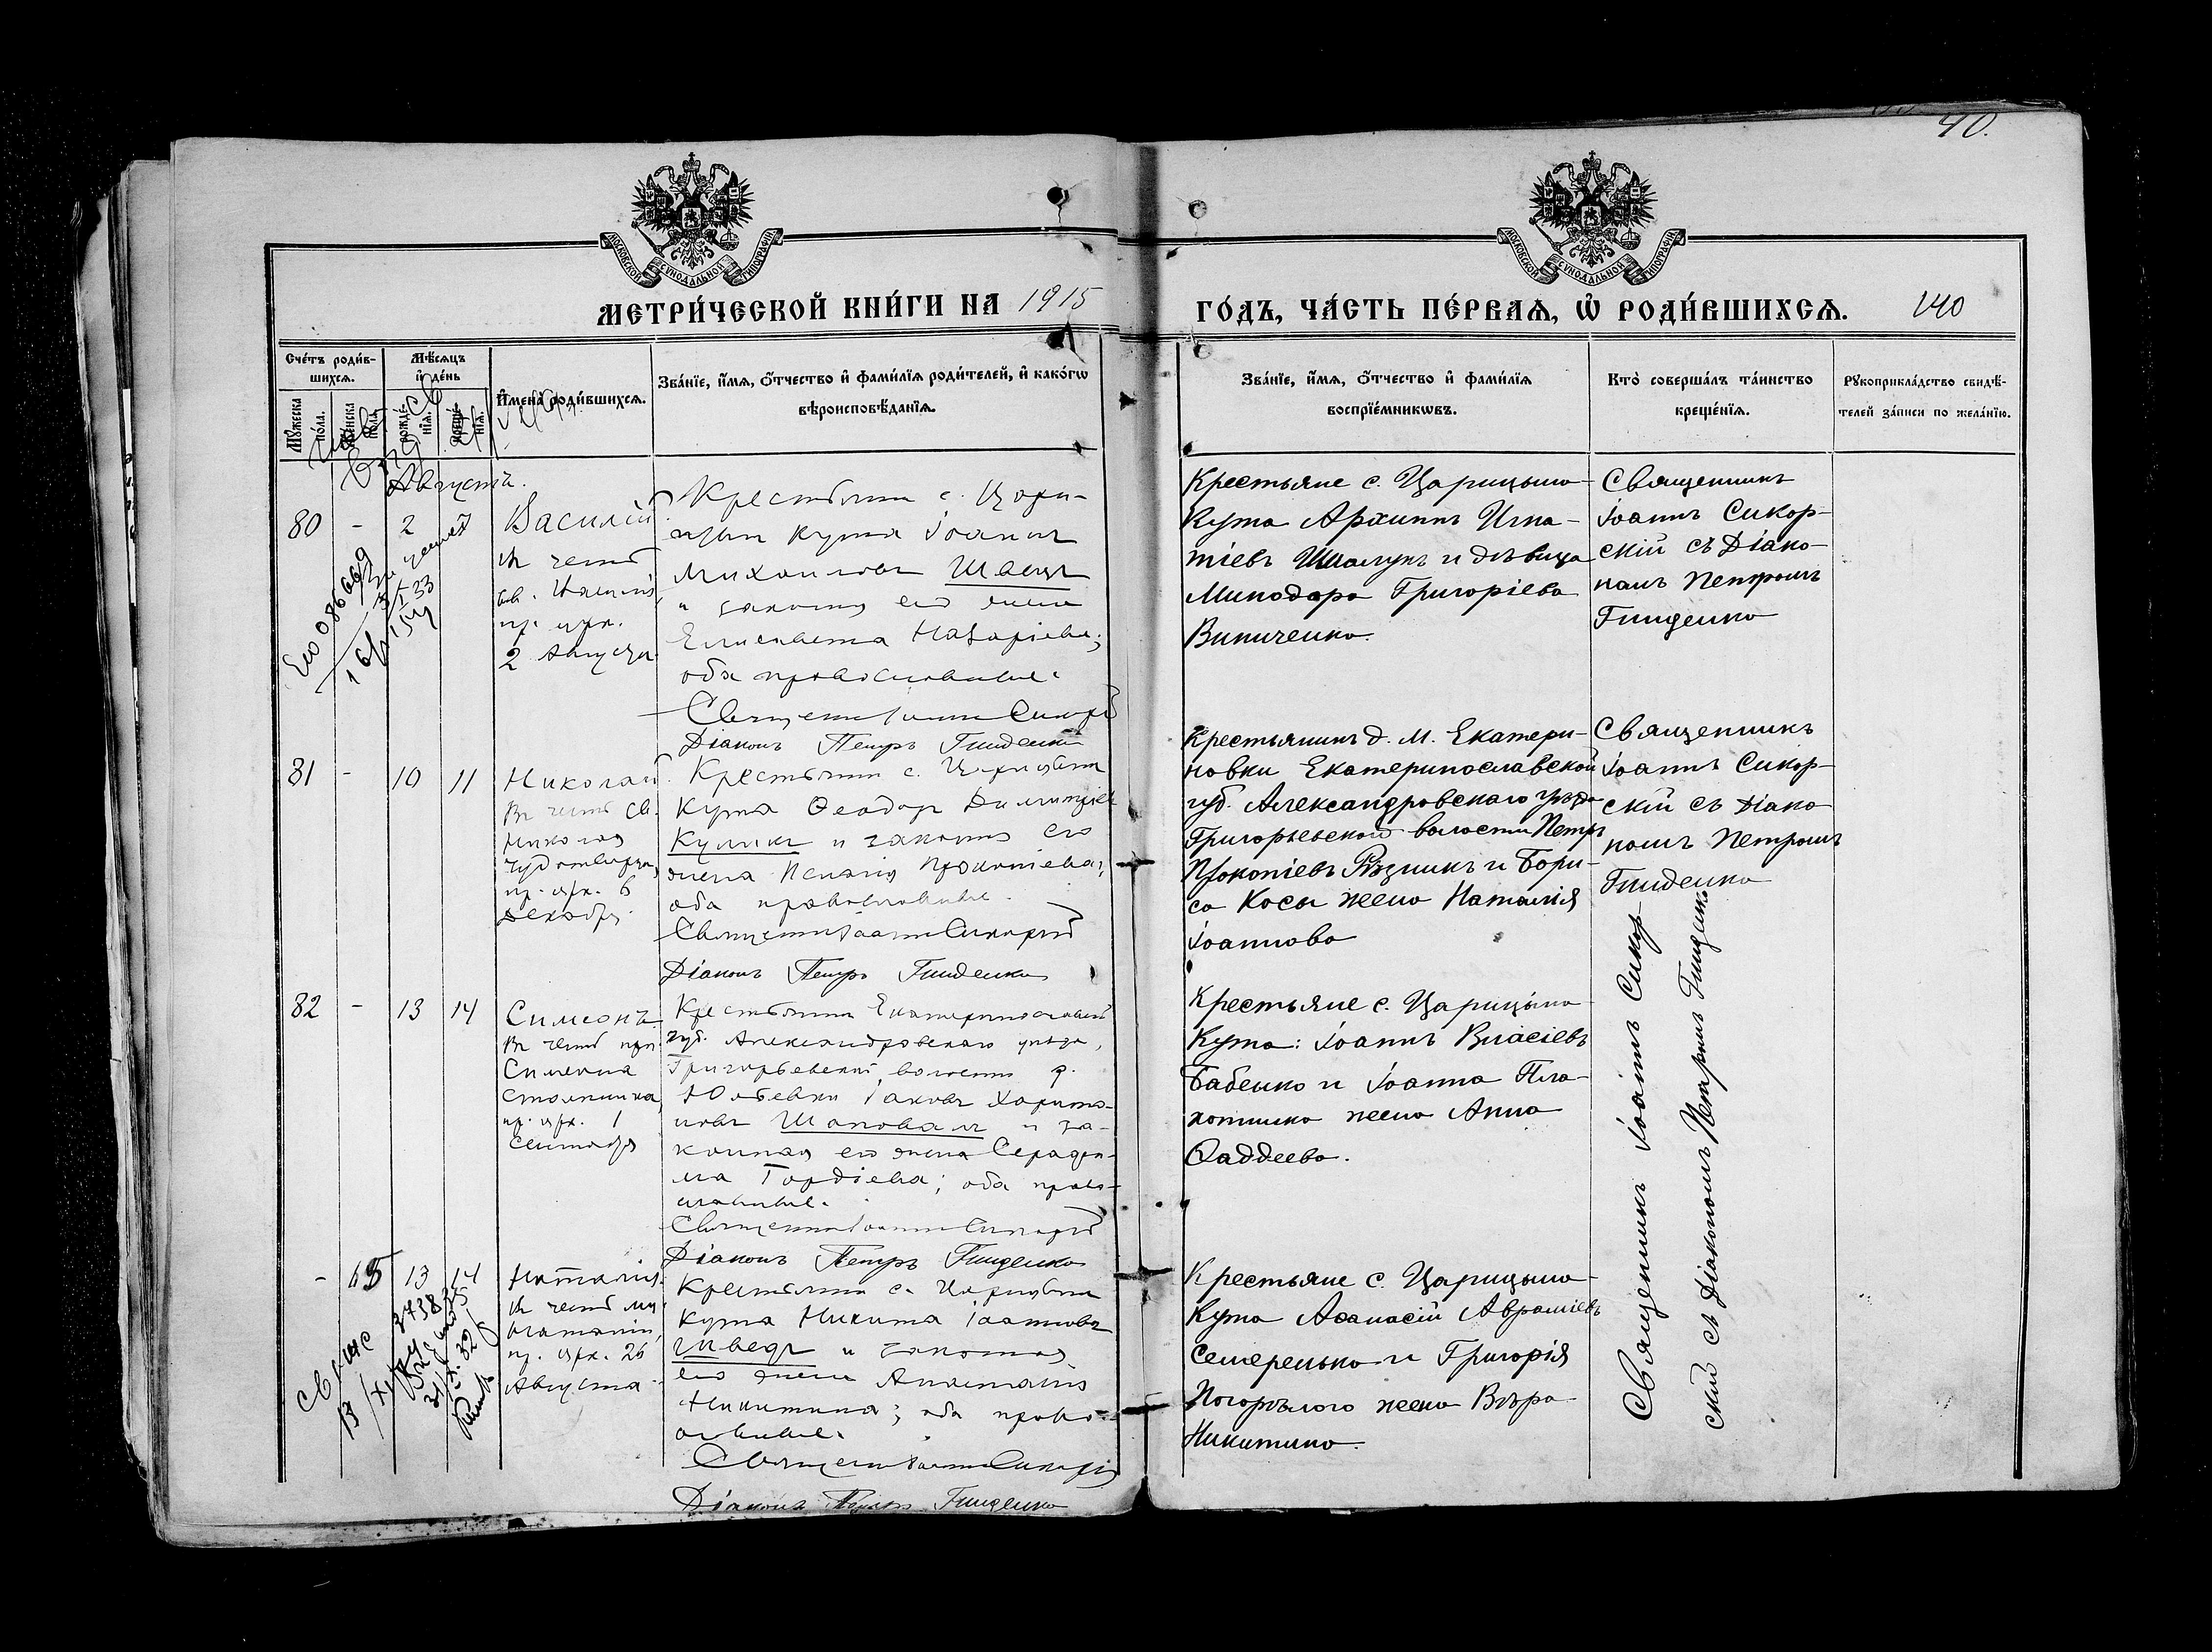 40.
МОСКОВСКОЙ СѴНОДАЛЬНОЙ ТИПОГРАФІИ
МОСКОВСКОЙ СѴНОДАЛЬНОЙ ТИПОГРАФІИ
МЕТРИ́ЧЕСКОЙ КНИ́ГИ НА 1915
ГО́ДЪ, ЧА́СТЬ ПЕ́РВАѦ, Ѡ҆ РОДИ́ВШИХСѦ. 140
Сче́тъ роди́в-
шихсѧ.
Мꙋ́жеска по́ла.
Же́нска по́ла.
Мѣ́сѧцъ
и҆ де́нь
рожде́-
нїѧ.
креще́-
нїѧ.
И҆мена̀ роди́вшихсѧ.
Зва́нїе, и҆́мѧ, ѻ҆́тчество и҆ фами́лїѧ роди́телей, и҆ како́гѡ
вѣроисповѣ́данїѧ.
Зва́нїе, и҆́мѧ, ѻ҆́тчество и҆ фами́лїѧ
воспрїе́мникѡвъ.
Кто̀ соверша́лъ та́инство
креще́нїѧ.
Рꙋкоприкла́дство свидѣ́-
телей за́писи по жела́нїю.
Августъ.
80 - 2
Василій
въ честь
св. Василія
пр. црк.
2 Августа
Крестьянинъ с. Цари-
цынъ Кута Іоаннъ
Михаиловъ Швецъ
и законная его жена
Елисавета Назаріева;
оба православные.
Священникъ Іоаннъ Сикорскій
Діаконъ Петръ Гниденко
Крестьяне с. Царицына
Кута Архиппъ Игна-
тіевъ Шалунъ и дѣвица
Минодора Григоріева
Винниченко.
Священникъ
Іоаннъ Сикор-
скій съ Діако-
номъ Петромъ
Гниденко
81 - 10 11
Николай.
Въ честь св.
Николая
Чудотворца,
пр. црк. 6
Декабря.
Крестьянинъ с. Царицына
Кута Ѳеодоръ Димитріевъ
Куликъ и законная его
жена Пелагія Прокопіева;
оба православные.
Священникъ Іоаннъ Сикорскій
Діаконъ Петръ Гниденко
Крестьянинъ д. М. Екатери-
новки Екатеринославской
губ. Александровскаго уѣзда
Григорьевской волости Петръ
Прокопіевъ Рѣзникъ и Бори-
са Косы жена Наталія
Іоаннова
Священникъ
Іоаннъ Сикор-
скій съ Діако
номъ Петромъ
Гниденко
82 - 13 14
Симеонъ.
Въ честь прп.
Симеона
Столпника,
пр. црк. 1
Сентября
Крестьянинъ Екатеринославской
губ. Александровскаго уѣзда,
Григорьевской волости д.
Юльевки Іаковъ Харито-
новъ Шаповалъ и за-
конная его жена Серафи-
ма Гордіева; оба право-
славные.
Священникъ Іоаннъ Сикорскій
Діаконъ Петръ Гниденко
Крестьяне с. Царицына
Кута: Іоаннъ Власіевъ
Бабенко и Іоанна Пла-
хотника жена Анна
Ѳаддеева.
- 65 13 14
Наталія.
въ честь мц.
Наталіи,
пр. црк. 26
Августа
Крестьянинъ с. Царицына
Кута Никита Іоанновъ
Шведъ и законная
его жена Анастасія
Никитина; оба право-
славные.
Священникъ Іоаннъ Сикорскій
Діаконъ Петръ Гниденко
Крестьяне с. Царицына
Кута Аѳанасій Авраміевъ
Семеренько и Григорія
Погорѣлого жена Вѣра
Никитина.
Священникъ Іоаннъ Сикор-
скій съ Діакономъ Петромъ Гниденко